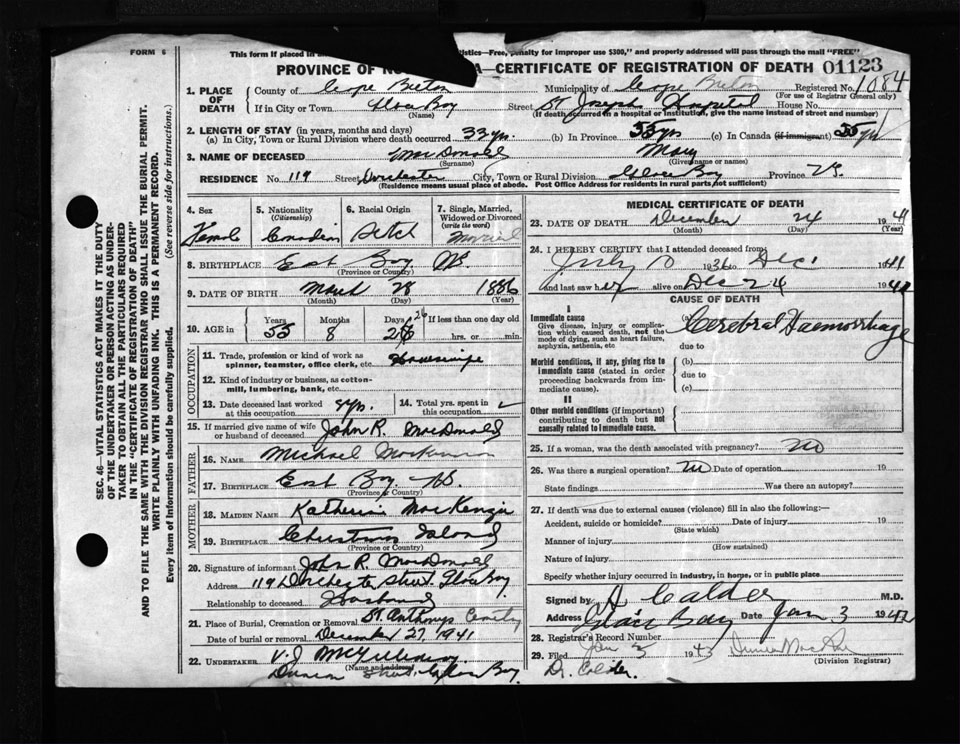 FORM 6
This form if placed in an
istics—Free, penalty for improper use $300," and properly addressed will pass through the mail "FREE"
PROVINCE OF NO A—CERTIFICATE OF REGISTRATION OF DEATH 01123
1. PLACE OF DEATH County of Cape Breton Municipality of Cape Breton Registered No. 1084
(For use of Registrar General only)
If in City or Town Glace Bay Street St Joseph Hospital House No.
(Name) (If death occurred in a hospital or institution, give the name instead of street and number)
2. LENGTH OF STAY (in years, months and days)
(a) In City, Town or Rural Division where death occurred 33 yrs. (b) In Province 55 yrs (c) In Canada (if immigrant) 55 yrs
3. NAME OF DECEASED MacDonald Mary
(Surname) (Given name or names)
RESIDENCE No. 119 Street Dorchester City, Town or Rural Division Glace Bay Province N.S.
(Residence means usual place of abode. Post Office Address for residents in rural parts not sufficient)
4. Sex Female
5. Nationality (Citizenship) Canadian
6. Racial Origin Scotch
7. Single, Married, Widowed or Divorced (write the word) Married
8. BIRTHPLACE East Bay NS.
(Province or Country)
9. DATE OF BIRTH March 28 1886
(Month) (Day) (Year)
10. AGE in Years 55 Months 8 Days 26 26 If less than one day old
hrs. or min.
OCCUPATION
11. Trade, profession or kind of work as spinner, teamster, office clerk, etc. Housewife
12. Kind of industry or business, as cotton-mill, lumbering, bank, etc.
13. Date deceased last worked at this occupation yrs.
14. Total yrs. spent in this occupation
15. If married give name of wife or husband of deceased John R. MacDonald
FATHER
16. NAME Michael MacKinnon
17. BIRTHPLACE East Bay NS.
(Province or Country)
MOTHER
18. MAIDEN NAME Katherine MacKenzie
19. BIRTHPLACE Christmas Island
(Province or Country)
20. Signature of informant John R. MacDonald
Address 119 Dorchester Street Glace Bay
Relationship to deceased Husband
21. Place of Burial, Cremation or Removal St. Anthonys
Date of burial or removal December 27, 1941
22. UNDERTAKER V.J. McGillivray
(Name and address)
Street Glace Bay
MEDICAL CERTIFICATE OF DEATH
23. DATE OF DEATH December 24 1941
(Month) (Day) (Year)
24. I HEREBY CERTIFY that I attended deceased from:
July 10 1936 to Dec 1941
and last saw her alive on Dec 24 1941
CAUSE OF DEATH
I
Immediate cause (a) Cerebral Haemorrhage
Give disease, injury or complication which caused death, not the mode of dying, such as heart failure, asphyxia, asthenia, etc
due to
Morbid conditions, if any, giving rise to immediate cause (stated in order proceeding backwards from immediate cause). (b)
due to
(c)
II
Other morbid conditions (if important) contributing to death but not causally related to immediate cause.
25. If a woman, was the death associated with pregnancy? No
26. Was there a surgical operation? No Date of operation 19
State findings Was there an autopsy?
27. If death was due to external causes (violence) fill in also the following:—
Accident, suicide or homicide? Date of injury 19
(State which)
Manner of injury
(How sustained)
Nature of injury
Specify whether injury occurred in industry, in home, or in public place
Signed by A Calder M.D.
Address Glace Bay Date Jan 3 1942
28. Registrar's Record Number
29. Filed Jan 3 194
(Division Registrar)
Dr. Calder.
SEC. 46—VITAL STATISTICS ACT MAKES IT THE DUTY
OF THE UNDERTAKER OR PERSON ACTING AS UNDER-
TAKER TO OBTAIN ALL THE PARTICULARS REQUIRED
IN THE "CERTIFICATE OF REGISTRATION OF DEATH"
AND TO FILE THE SAME WITH THE DIVISION REGISTRAR WHO SHALL ISSUE THE BURIAL PERMIT.
WRITE PLAINLY WITH UNFADING INK. THIS IS A PERMANENT RECORD.
Every item of Information should be carefully supplied. (See reverse side for instructions.)